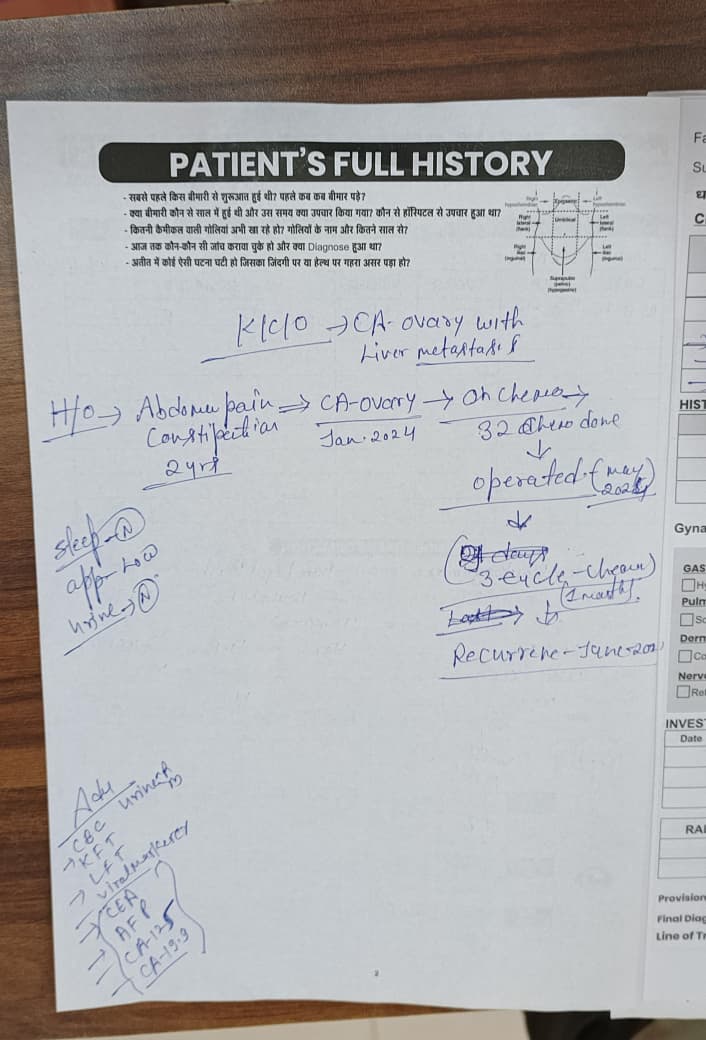 PATIENT'S FULL HISTORY
- सबसे पहले किस बीमारी से शुरूआत हुई थी? पहले कब कब बीमार पड़े?
- क्या बीमारी कौन से साल में हुई थी और उस समय क्या उपचार किया गया? कौन से हॉस्पिटल से उपचार हुआ था?
- कितनी कैमीकल वाली गोलियां अभी खा रहे हो? गोलियों के नाम और कितने साल से?
- आज तक कौन-कौन सी जांच करावा चुके हो और क्या Diagnose हुआ था?
- अतीत में कोई ऐसी घटना घटी हो जिसका जिंदगी पर या हेल्थ पर गहरा असर पड़ा हो?
Right hypochondrian
Epigastric
Left hypochondrian
Right lateral (flank)
Umbilical
Left lateral (flank)
Right iliac (inguinal)
Left iliac (inguinal)
Suprapubic (pelvic) (hypogastric)
K/C/O → CA- ovary with
Liver metastasis
H/O → Abdomen pain ⇒ CA-ovary → On Chemo →
Constipation
Jan. 2024
32 Chemo done
2 yrs
operated (may
↓
3-cycle-chemo)
(1 month)
Recurrence - June-202
Sleep-(N)
app-Low
urine → (N)
Adv
→ CBC urine R
→ KFT
→ LFT
viralmarkers
→ CEA
→ AFP
- CA-125
- CA-19.9
2
HIST
Gyna
GAS
Pulm
Dern
Nerv
INVES
Date
RA
Provision
Final Diag
Line of Tr